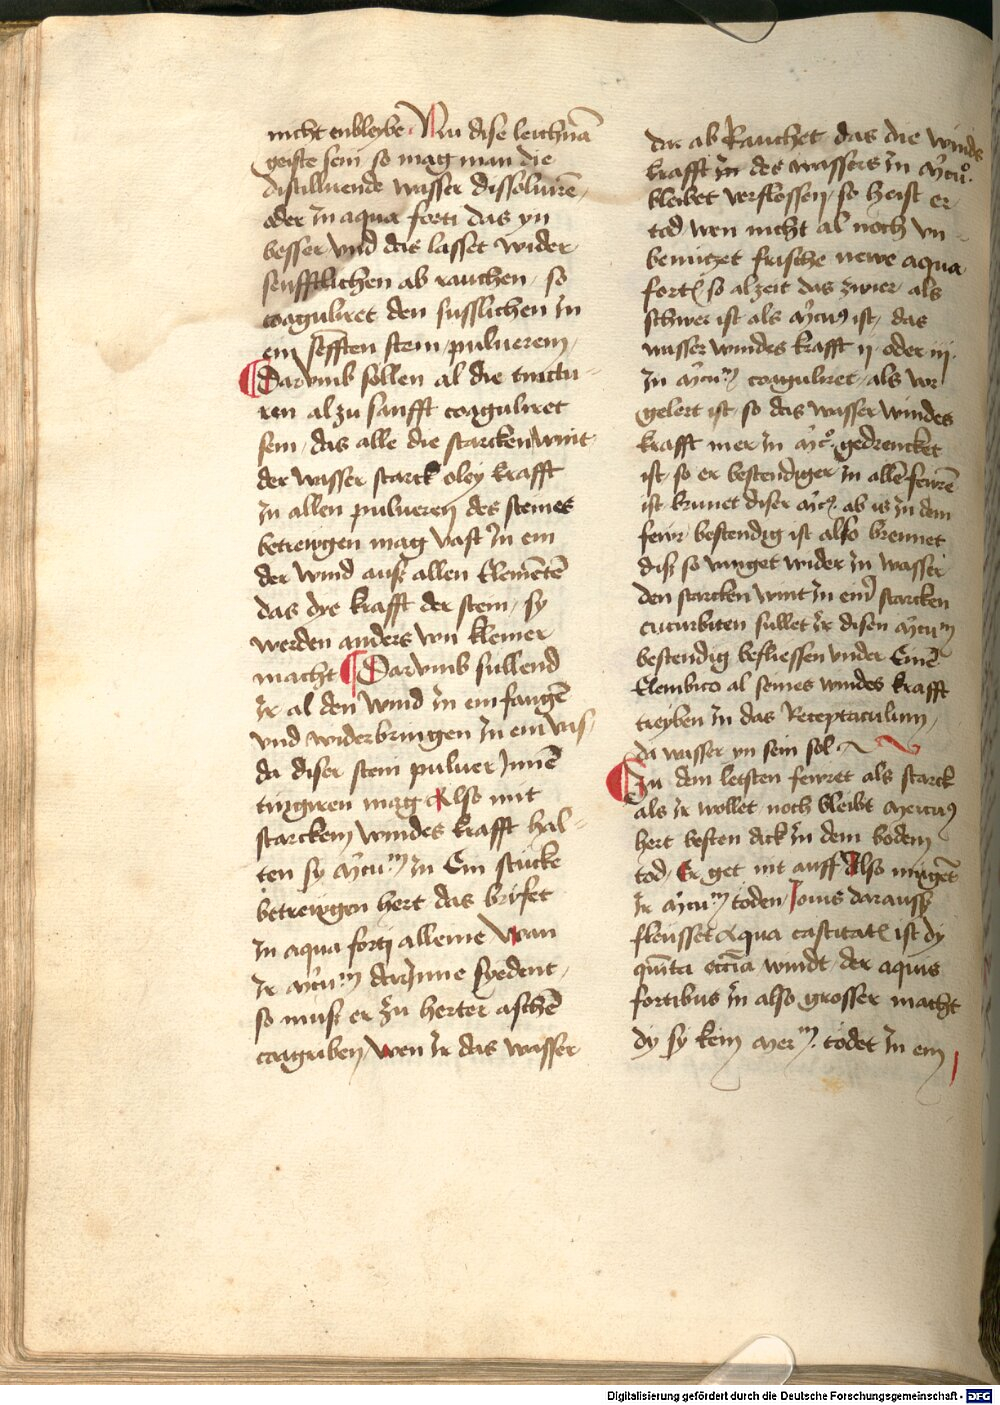 nicht enbleybe Nu dise leichnā
geiste sein so mag man die
distilluende wasser dissoluirē,
oder in aqua forti das yn
besser vnd das lasset wider
senfftlichen ab rauchen, so
coaguliret den susslichen in
ein senfften stein, puluerem,
Darvmb sollen al die tinctu-
ren alzu sanfft coaguliret
sein, das alle die starcken wint
der wasser starck oley krafft
in allen pulueren des steines
betreiugen mag vast in ein
der wind auss allen Elemētē
das die krafft der stein, sy
werden anders vm kleiner
macht Darvmb sullend
Ir al den wind in ein fangē
vnd widerbringen in ein vas,
da diser stein puluer Innē
tingiren mag Also mit
starckem windes krafft hal-
ten sy mcuͫ in Ein stucke
betreiugen hert das brüfet
in aqua forti alleine Wan
Ir mcuͫ darinne syedent,
so muss er zu herter aschē
coaguben, Wen Ir das wasser
dar ab Rauchet das die winds
krafft in des wassers in mcu°
bleibet verflossen, so heist er
tod wen nicht al noch vn-
benutzet frische newe aqua
fort so alzeit das zwier als
schwer ist als mcu9 ist, das
wasser windes krafft ij oder iij
In mcuͫ coaguliret, als vor
gelert ist, so das wasser windes
krafft mer in mc° gedrencket
ist, so er bestendiger in allē feurē
ist brinet diser mc9 ab is in dem
fewr, bestendig ist also brennet
diss so ringet wider in wasser
den starcken wint in ein starcken
cucurbiten fullet Ir disen mcuͫ
bestendig befliessen vnder Einē
Elembico al seines windes krafft
treyben in das Receptaculum,
da wasser yn sein sol
In dem letsten fewret als starck
als Ir wollet noch bleibt mercu9
hert besten dick in dem bodem
tod, Er get nit auff Also mugēt
Ir mcuͫ toden, Iouis daraussz
fleusset Aqua castitat ist dy
quinta eccia, windt, der aquis
fortibus in also grosser macht
dy sy kein merͫ. todet in ein
Digitalisierung gefördert durch die Deutsche Forschungsgemeinschaft - DFG